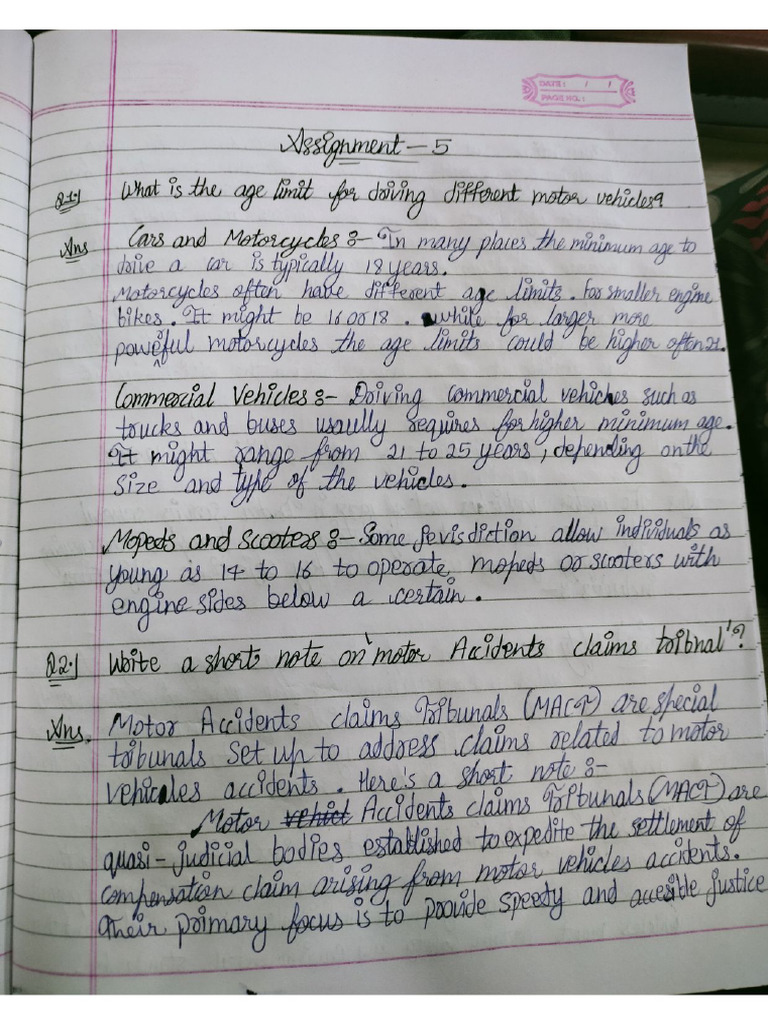 DATE: / /
PAGE NO.:
Assignment - 5
Q1.) What is the age limit for driving different motor vehicles?
Ans Cars and Motorcycles :- In many places the minimum age to
drive a car is typically 18 years.
Motorcycles often have different age limits. For smaller engine
bikes. It might be 16 or 18. while for larger more
poweful motorcycles the age limits could be higher often 21.
Commercial Vehicles :- Driving commercial vehicles such as
trucks and buses usaully requires for higher minimum age.
It might range from 21 to 25 years, depending on the
size and type of the vehicles.
Mopeds and Scooters :- Some jevisdiction allow individuals as
young as 14 to 16 to operate mopeds or scooters with
engine sides below a certain.
Q2.) Write a short note on 'motor Accidents claims tribnal'?
Ans. Motor Accidents claims Tribunals (MACT) are special
tribunals set up to address claims related to motor
vehicales accidents. Here's a short note :-
Motor vehicl Accidents claims Tribunals (MACT) are
quasi-judicial bodies established to expedite the settlement of
compensation claim arising from motor vehicles accidents.
Their primary focus is to provide speedy and accesible justice